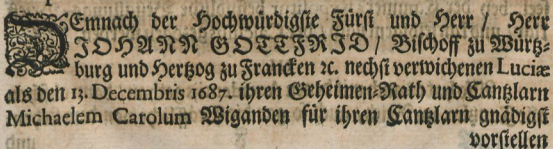 DEmnach der Hochwürdigste Fürst und Herr / Herr
JOHANN GOTTFRID / Bischoff zu Würtz-
burg und Hertzog zu Francken ꝛc. nechst verwichenen Luciæ
als den 13. Decembris 1687. ihren Geheimen-Rath und Cantzlarn
Michaelem Carolum Wiganden für ihren Cantzlarn gnädigst
vorstellen